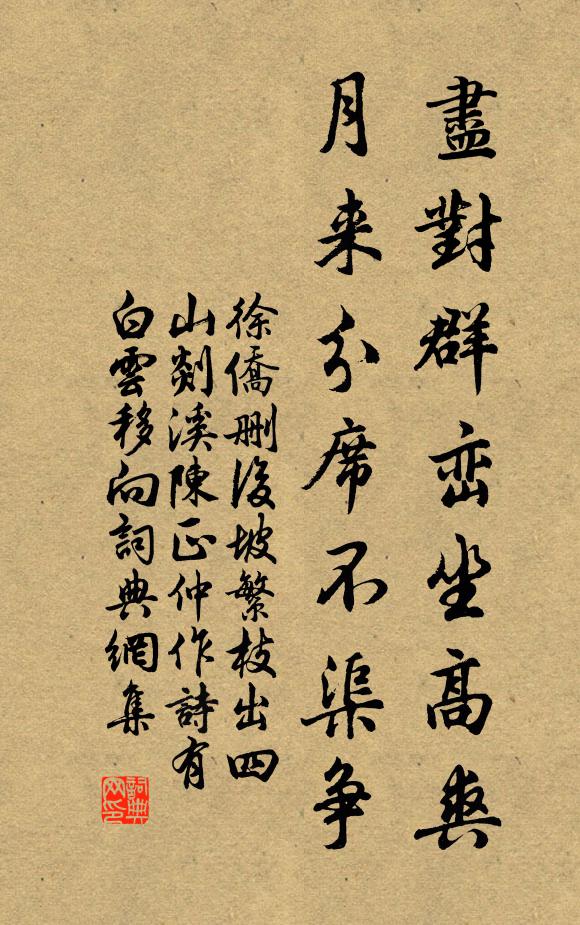 盡對群峦坐高爽
月来分席不渠争
徐僑删後坡繁枝出四
山剡溪陳正仲作詩有
白雲移向詞典網集
詞典网印